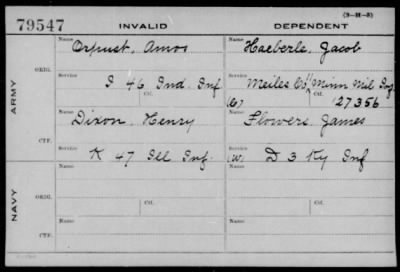 (3-H-5)
79547 INVALID DEPENDENT
ARMY
ORIG.
Name Orpust, Amos
Name Haeberle, Jacob
Service I 46 Ind. Inf
Service Meiles Co Minn Mil Inf
Ctf.
Ctf. 27356
CTF.
Name Dixon, Henry
Name Flowers, James
Service K 47 Ill Inf.
Service (W) D 3 Ky Inf
NAVY
ORIG.
Name
Name
Ctf.
Ctf.
CTF.
Name
Name